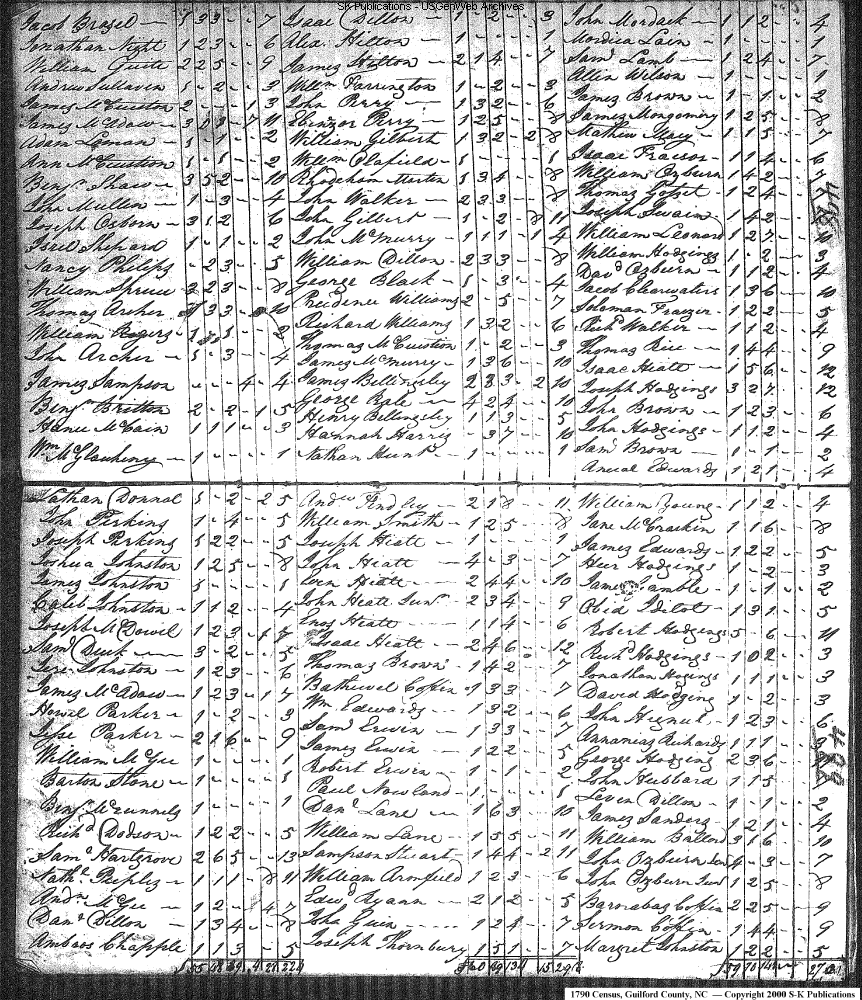 S-K Publications - USGenWeb Archives
Jacob Brasel 1 3 3 - - 7
Jonathan Night 1 2 3 - - 6
William 2 2 5 - - 9
Andrew Sullaven 1 - 2 - - 3
James McCuiston 2 - - 1 3
James McAdow 3 - 7 11
Adam Leman 1 - 1 - - 2
Ann McCuistion 1 - 1 - - 2
Benjn Shaw 3 5 2 - - 10
John Mullen 1 - 3 - - 4
Joseph Osborn 3 1 2 - - 6
Isreil Shepard 1 - 1 - - 2
Nancy Philips - 2 3 - - 5
William Spruce 3 2 3 - - 8
Thomas Archer 3 3 10
William Rogers 2
John Archer 1 - 3 - - 4
James Sampson - - - 4 - 4
Benjn Britton 2 - 2 - 1 5
Hance McCain 1 1 1 - - 3
Wm McGlauheny 1 - - - - 1
Isaac Dillon 1 - 2 - - 3
Alex. Hilton 1 - - - - 1
James Hilton 2 1 4 - - 7
Willm Farrington 1 - 2 - - 3
John Perry 1 3 2 - - 6
Ebinezor Perry 1 2 5 - - 8
William Gilbert 1 3 2 - 2 8
Willm Olafield 1 - - - - 1
Rhodeham Marten 1 3 4 - - 8
John Walker 2 3 3 - - 8
John Gilbert 1 - 2 - 8 11
John McMurry 1 1 1 - 1 4
William Dillon 2 3 3 - - 8
George Black 1 - 3 - - 4
Prudence Williams 2 - 5 - - 7
Richard Williams 1 3 2 - - 6
Thomas McCuistion 1 - 2 - - 3
James McMurry 1 3 6 - - 10
James Billingsley 2 3 3 - 2 10
George Rale 4 2 4 - - 10
Henry Bellingsley 1 1 3 - - 5
Hannah Harris - 3 7 - - 10
Nathan Hunt 1 - - - - 1
John Mordack 1 1 2 - - 4
Mordica Lain 1 - - - - 1
Saml Lamb 1 2 4 - - 7
Allin Wilson 1 - - - - 1
James Brown 1 - 1 - - 2
James Mongomery 1 2 5 - - 8
Mathew Macy 1 1 5 - - 7
Isaac Fraesor 1 1 4 - - 6
William Ozburn 1 4 2 - - 7
Thomas 1 2 4 - -
Joseph Swain 1 4 2 - -
William Leonard 1 2 7 - - 10
William Hodgings 1 - 2 - - 3
Davd Ozburn 1 1 2 - - 4
Jacob Clearwaters 1 3 6 - - 10
Soloman Frazier 1 2 2 - - 5
Richd Walker 1 1 2 - - 4
Thomas Rice 1 4 4 - - 9
Isaac Hiatt 1 5 6 - - 12
Joseph Hodgings 3 2 7 - - 12
John Brown 1 2 3 - - 6
John Hodgings 1 1 2 - - 4
Saml Brown 1 - 1 - - 2
Edwards 1 2 1 - - 4
Lathan Donnal 1 - 2 - 2 5
John Perkins 1 - 4 - - 5
Joseph Perkins 1 2 2 - - 5
Joshua Johnston 1 2 5 - - 8
James Johnston 1 - - - - 1
Caleb Johnston 1 1 2 - - 4
Joseph McDowil 1 2 3 - 1 7
Saml Duck 3 - 2 - - 5
Johnston 1 2 3 - - 6
James McAdow 1 2 3 - 1 7
Howel Parker 1 - 2 - - 3
Jesse Parker 2 1 6 - - 9
William McGee 1 - - - - 1
Barton Stone 1 - - - - 1
Benjn McRunnels 1 - - - - 1
Richd Dodson 1 2 2 - - 5
Saml Hartgrove 2 6 5 - - 13
Nathl Peeples 1 1 1 - 8 11
Andw McGee 1 2 - - 4 7
Danl Dillon 1 3 4 - - 8
Ambaos Chapple 1 1 3 - - 5
Andw Findley 2 1 8 - - 11
William Smith 1 2 5 - - 8
Joseph Hiatt 1 - - - - 1
John Hiatt 4 - 3 - - 7
Even Hiatt 2 4 4 - - 10
John Hiatt Junr 2 3 4 - - 9
Enos Hiatt 1 1 4 - - 6
Isaac Hiatt 2 4 6 - - 12
Thomas Brown 1 4 2 - - 7
Bathuel Coffin 1 3 3 - - 7
Wm Edwards 1 3 2 - - 6
Saml Erwin 1 3 3 - - 7
James Erwin 1 2 2 - - 5
Robert Erwin 1 - 1 - - 2
Paul Nowland 1 - - - - 1
Danl Lane 1 6 3 - - 10
William Lane 1 5 5 - - 11
Sampson Stuart 1 4 4 - 2 11
William Armfield 1 2 3 - - 6
Edwd Ryann 2 1 2 - - 5
John Guin 1 2 4 - - 7
Joseph Thornbury 1 5 1 - - 7
William Young 1 1 2 - - 4
Jane McCrackin 1 1 6 - - 8
James Edwards 1 2 2 - - 5
Hur Hodgings 1 - 2 - - 3
James Gamble 1 - 1 - - 2
Obid 1 3 1 - - 5
Robert Hodgings 5 - 6 - - 11
Richd Hodgings 1 0 2 - - 3
Jonathan Hogings 1 1 1 - - 3
David Hodging 1 - 2 - - 3
John Hignut 1 2 3 - - 6
Annanias Richards 1 1 1 - - 3
George Hodging 2 3 6
John Hubbard 1 1 5
Leven Dillon 1 - 1 - - 2
James Sanders 1 2 1 - - 4
William Ballord 3 1 6 - - 10
John Ozburn Senr 4 - 3 - - 7
John Ozburn Junr 1 2 5 - - 8
Barnabas Coffin 2 2 5 - - 9
Sermon Coffin 1 4 4 - - 9
Margret Johnston 1 2 2 - - 5
1790 Census, Guilford County, NC — Copyright 2000 S-K Publications